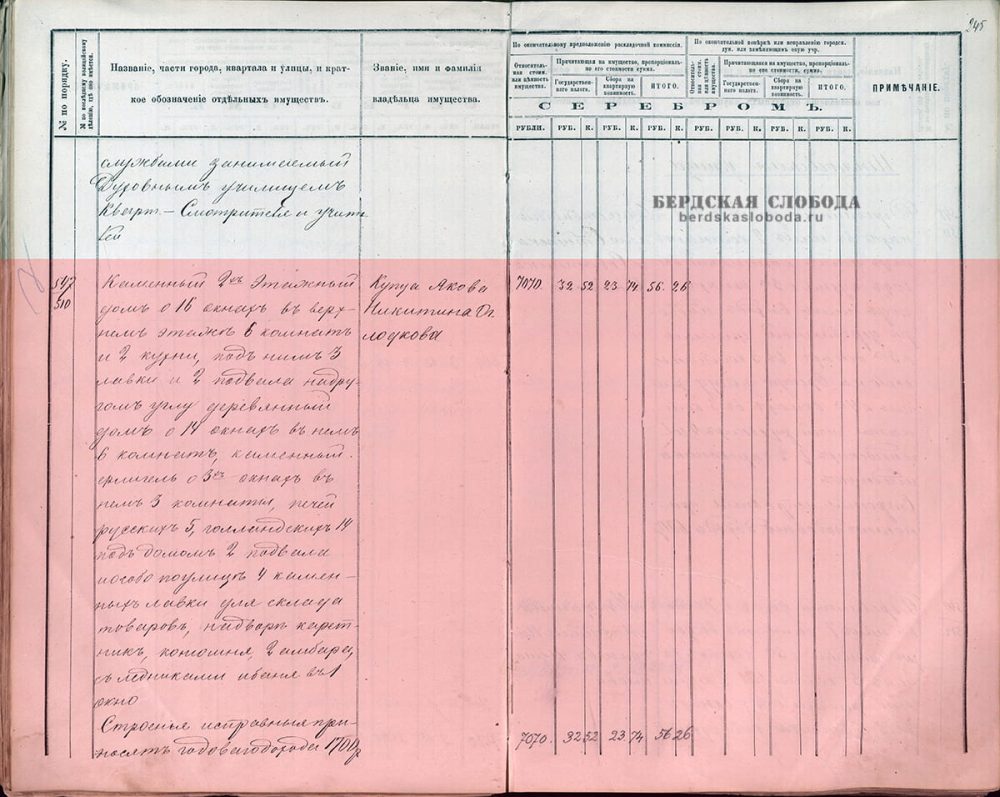 245
№ по порядку.
№ по последнему полицейскому дѣленію, гдѣ оно имѣется.
Названіе, части города, квартала и улицы, и крат-
кое обозначеніе отдѣльныхъ имуществъ.
Званіе, имя и фамилія
владѣльца имущества.
По окончательному предположенію раскладочной коммисіи.
Относитель-
ная стоим.
или цѣнность
имущества.
Причитающая на имущества, пропорціональ-
но его стоимости сумма.
Государствен-
наго налога.
Сбора на
квартирную
повинность.
ИТОГО.
По окончательной повѣркѣ или исправленію городск.
дум. или замѣняющихъ оную учр.
Относитель-
ная стоим.
или цѣнность
имущества.
Причитающаяся на имущества, пропорціональ-
но его стоимости, сумма.
Государствен-
наго налога.
Сбора на
квартирную
повинность.
ИТОГО.
ПРИМѢЧАНІЕ.
СЕРЕБРОМЪ.
РУБЛИ. РУБ. К. РУБ. К. РУБ. К. РУБ. РУБ. К. РУБ. К. РУБ. К.
службами занимаемый
Духовнымъ училищемъ
Кварт – Смотрителя и учите
лей
БЕРДСКАЯ СЛОБОДА
berdskasloboda.ru
547
510
Каменный 2хъ этажный
домъ о 16 окнахъ въ верх-
немъ этажѣ 6 комнатъ
и 2 кухни, подъ нимъ 3
лавки и 2 подвала надру-
гомъ углу деревянный
домъ о 14 окнахъ въ немъ
6 комнатъ, каменный
флигель о 3хъ окнахъ въ
немъ 3 комнаты, печей
русскихъ 5, голландскихъ 14
подъ домомъ 2 подвала
иособо поулицѣ 4 камен-
ныхъ лавки для склада
товаровъ, надворѣ карет-
никъ, конюшня, 2 амбара,
съ ледниками ибаня въ 1
окно
Строенья исправныя при-
носятъ годоваго дохода 1700 р
Купца Якова
Никитина
7070. 32 52 23 74 56 26
7070. 32 52 23 74 56 26